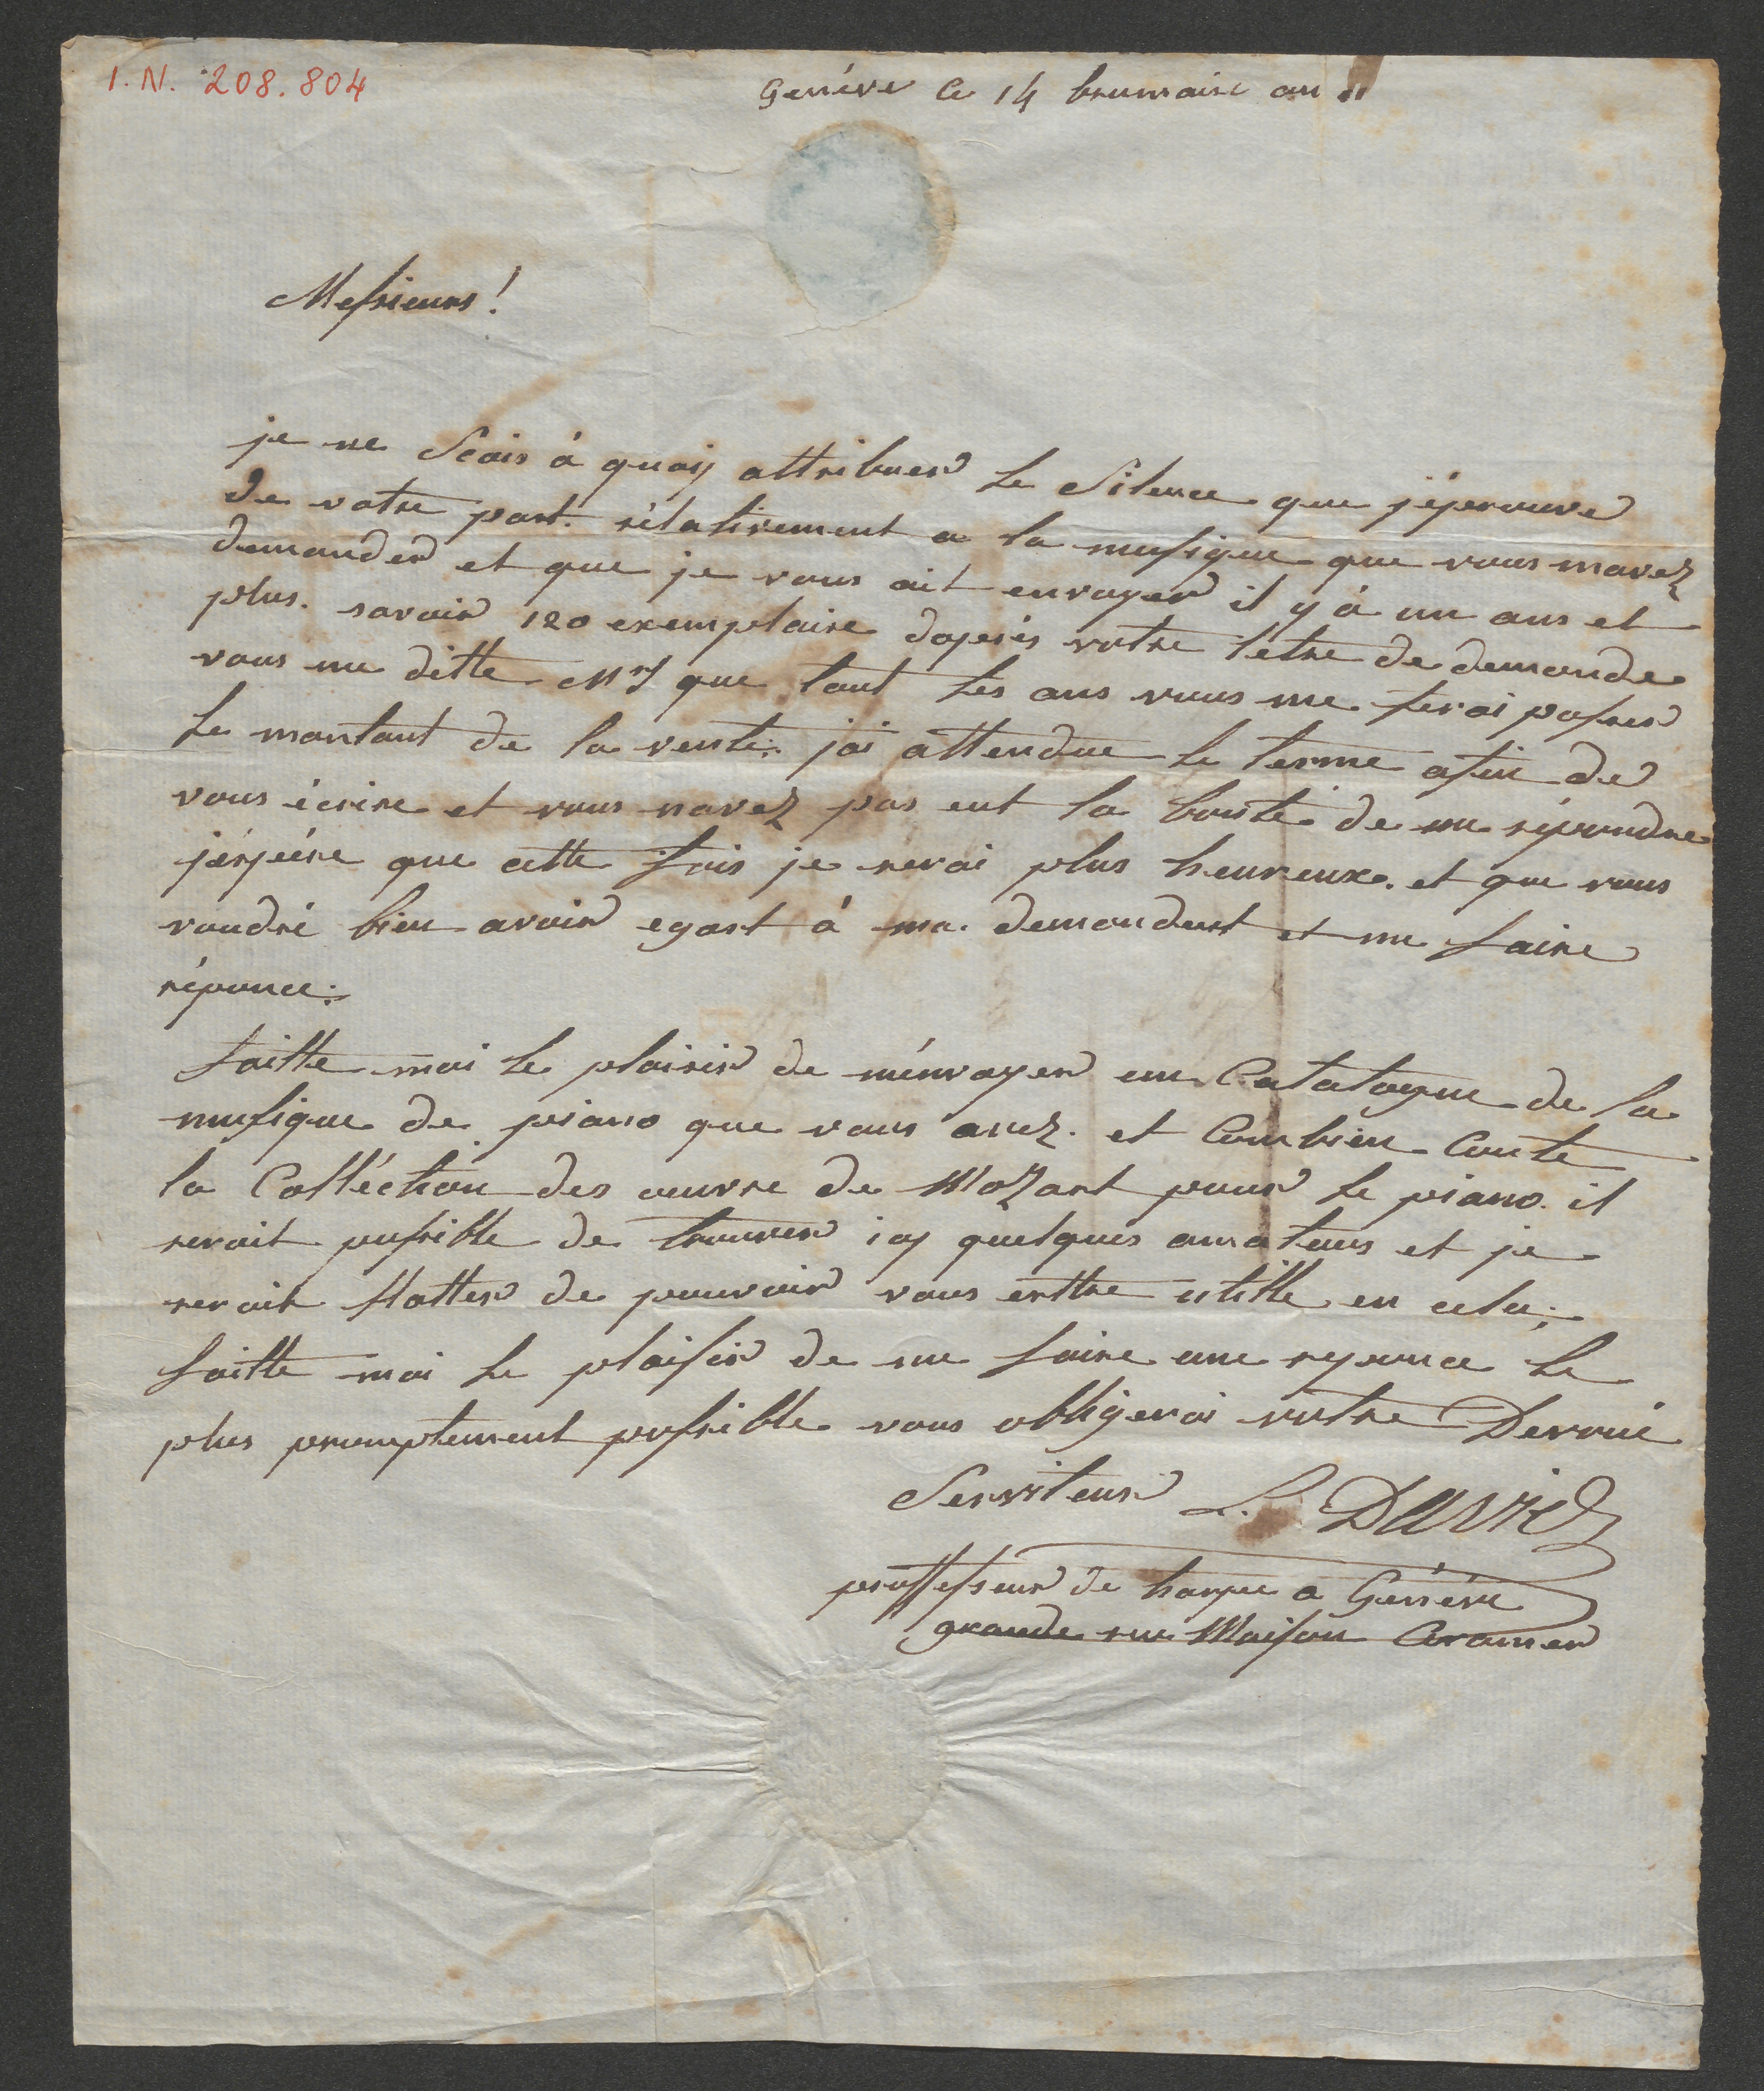 I. N. 208.804
Genéve Ce 14 brumaire an 11
Messieurs!
je ne Scais à quoiy attribuer le Silence que j'éprouve
de votre part. rélativement a la musique que vous mavez
demander et que je vous ait envoyer il y à un ans et
plus. savoir 120 exemplaire daprés votre letre de demande
vous me ditte Mrs que tout les ans vous me ferai passer
le montant de la vente. jai attendue le terme afin de
vous écrire et vous navez pas eut la bonté de me répondre
jéspére que cette fois je serai plus heureux. et que vous
voudré bien avoir egart à ma demandent et me faire
réponce:
faitte moi le plaisir de ménvoyer un Catatogue de la
musique de piano que vous avez. et Combien Coute
la Colléction des oeuvre de Mozart pour le piano. il
serait possible de trouver icy quelques amateurs et je
serait flatter de pouvoir vous enttre utille en cela;
faitte moi le plaisir de me faire une reponce le
plus promptement possible vous obligerai votre Devoué
Serviteur L. David
proffesseur de harpe a Genéve
grande rue Maison Cramer